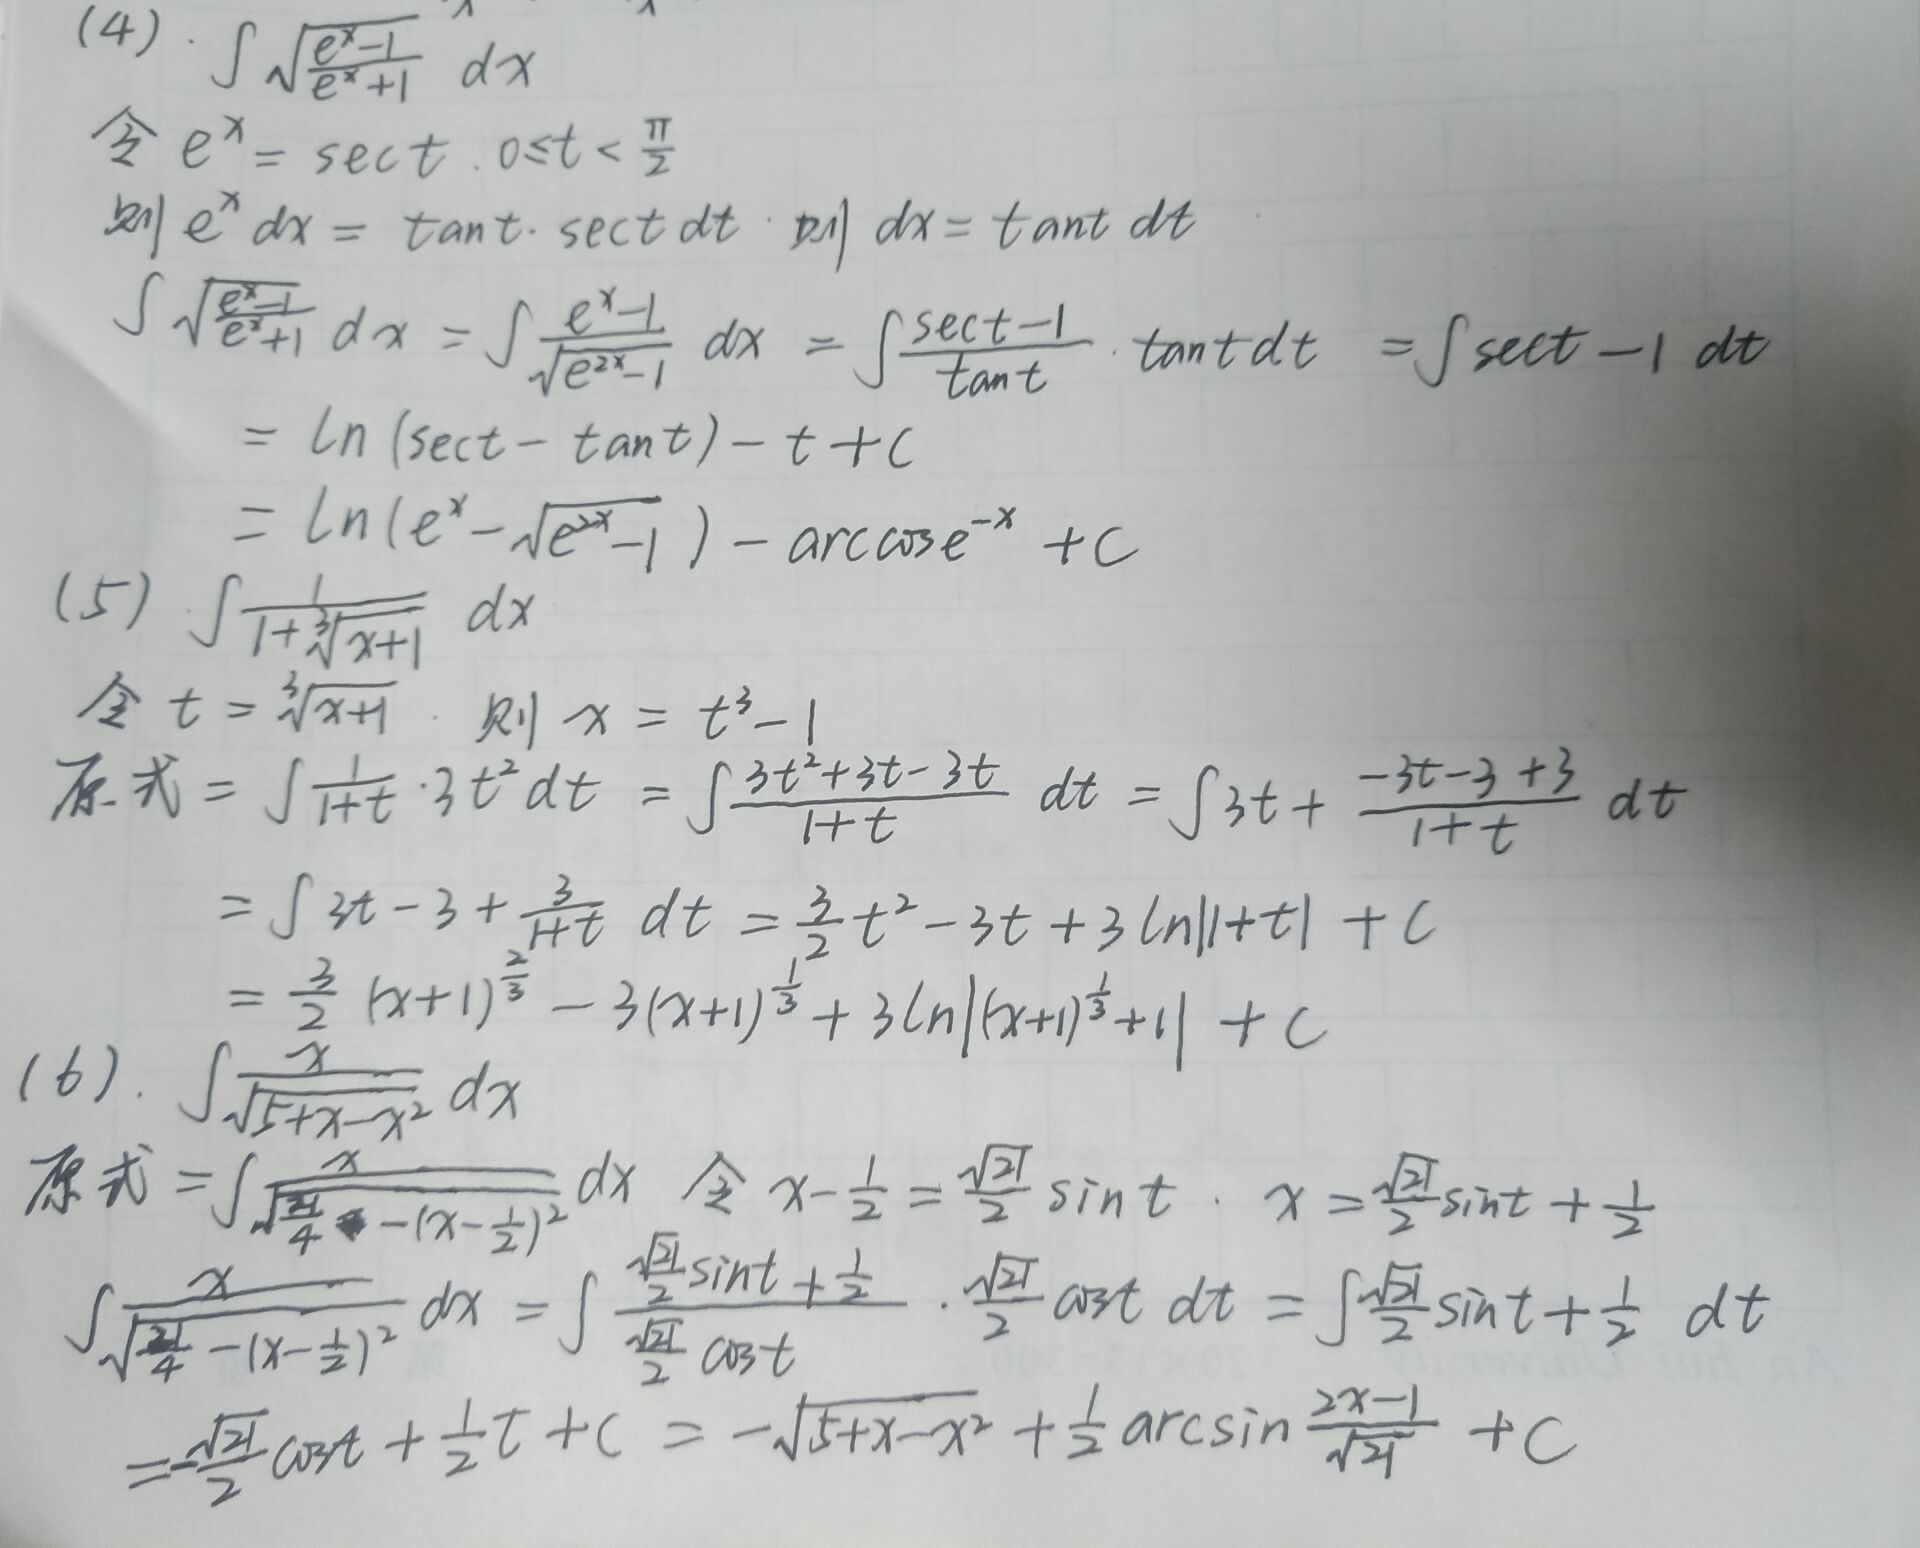 (4). ∫√((eˣ-1)/(eˣ+1)) dx
令 eˣ = sect . 0≤t<π/2
则 eˣ dx = tant·sect dt . 则 dx = tant dt
∫√((eˣ-1)/(eˣ+1)) dx = ∫(eˣ-1)/√(e²ˣ-1) dx = ∫(sect-1)/tant · tant dt = ∫sect-1 dt
= ln(sect-tant)-t+C
= ln(eˣ-√(e²ˣ-1))-arccose⁻ˣ+C
(5) ∫1/(1+∛(x+1)) dx
令 t = ∛(x+1) . 则 x = t³-1
原式 = ∫1/(1+t)·3t² dt = ∫(3t²+3t-3t)/(1+t) dt = ∫3t+(-3t-3+3)/(1+t) dt
= ∫3t-3+3/(1+t) dt = 3/2 t²-3t+3ln|1+t|+C
= 3/2 (x+1)^(2/3)-3(x+1)^(1/3)+3ln|(x+1)^(1/3)+1|+C
(6). ∫x/√(5+x-x²) dx
原式 = ∫x/√(21/4-(x-1/2)²) dx 令 x-1/2 = √21/2 sint . x = √21/2 sint+1/2
∫x/√(21/4-(x-1/2)²) dx = ∫(√21/2 sint+1/2)/(√21/2 cost) · √21/2 cost dt = ∫√21/2 sint+1/2 dt
= -√21/2 cost+1/2 t+C = -√(5+x-x²)+1/2 arcsin (2x-1)/√21+C